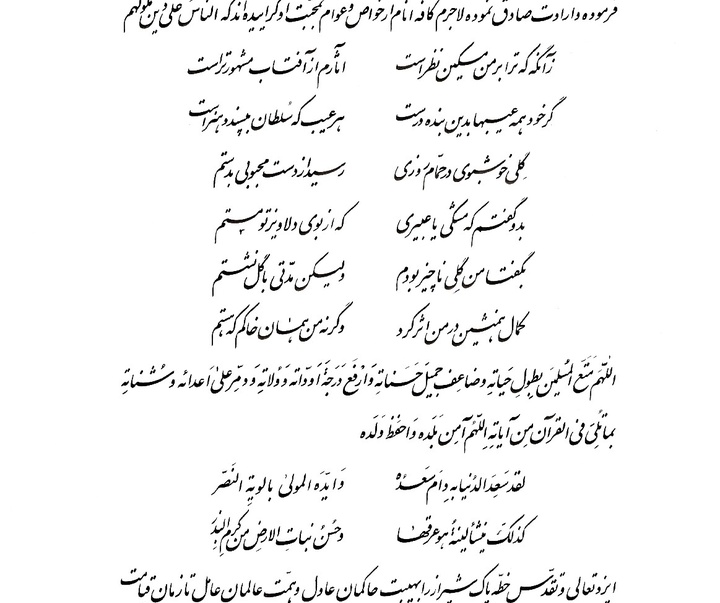 فرموده و ارادت صادق نموده لاجرم کافه انام از خواص و عوام به محبت او گراییده‌اند که الناس علی دین ملوکهم
زآنگه که ترا بر من مسکین نظر است آثارم از آفتاب مشهورتر است
گر خود همه عیبها بدین بنده درست هر عیب که سلطان بپسندد هنر است
گلی خوشبوی در حمام روزی رسید از دست محبوبی بدستم
بدو گفتم که مشکی یا عبیری که از بوی دلاویز تو مستم
بگفتا من گلی ناچیز بودم ولیکن مدتی با گل نشستم
کمال همنشین در من اثر کرد وگرنه من همان خاکم که هستم
اللّهم مَتِّع المُسلِمینَ بِطولِ حَیاتِهِ وضاعِف جمیلَ حَسَناتِهِ وَارفَع دَرَجَةَ اَوِدّائه وَوُلاتِهِ وَ دمِّر علیٰ اَعدائه وشُناتِه
بماتُلِیَ فی القرآن مِن آیاتِهِ اللّهُم آمِن بَلَده وَاحفَظ وَلَده
لقد سَعِدَ الدُنیا بِه دامَ سَعدُه وَ ایَّدَه المولیٰ بالویةِ النَصر
کذلکَ یَنشأ لینةٌ هو عرقها وحُسنُ نباتِ الارضِ من کرمِ البَذر
ایزد تعالی و تقدّس خطّه پاک شیراز را بهیبت حاکمان عادل و همّت عالمان عامل تا زمان قیامت